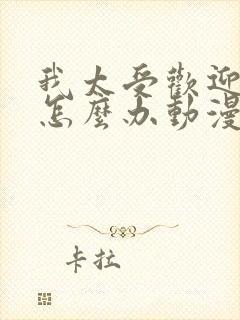 我太受歡迎
怎麼办動漫
卡拉